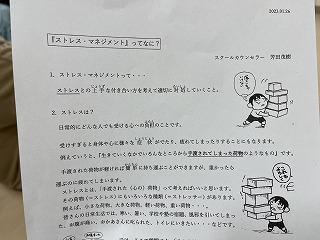 2023.01.26
『ストレス・マネジメント』ってなに？
スクールカウンセラー 芳田茂樹
1. ストレス・マネジメントって・・・
ストレスとの上手な付き合い方を考えて適切に対処していくこと。
2. ストレスは？
日常的にどんな人でも受ける心への負担のことです。
受けすぎると身体や心に様々な症状がでたり、疲れてしまったりすることにもなります。
例えていうと、「生きていくなかでいろんなところから手渡されてしまった荷物のようなもの」です。
手渡された荷物が軽ければ簡単に持ち運ぶことができますが、重かったら
運ぶのに疲れてしまいます。
ストレスとは、「手渡された（心の）荷物」って考えればいいと思います。
その荷物（＝ストレス）にもいろいろな種類（＝ストレッサー）があります。
例えば、小さな荷物、大きな荷物、軽い荷物、重い荷物・・・。
皆さんの日常生活では、寒い、暑い、学校や塾の宿題、風邪を引いてしまっ
た、お腹が痛い、おかあさんに叱られた、トイレにいきたい・・・などです。